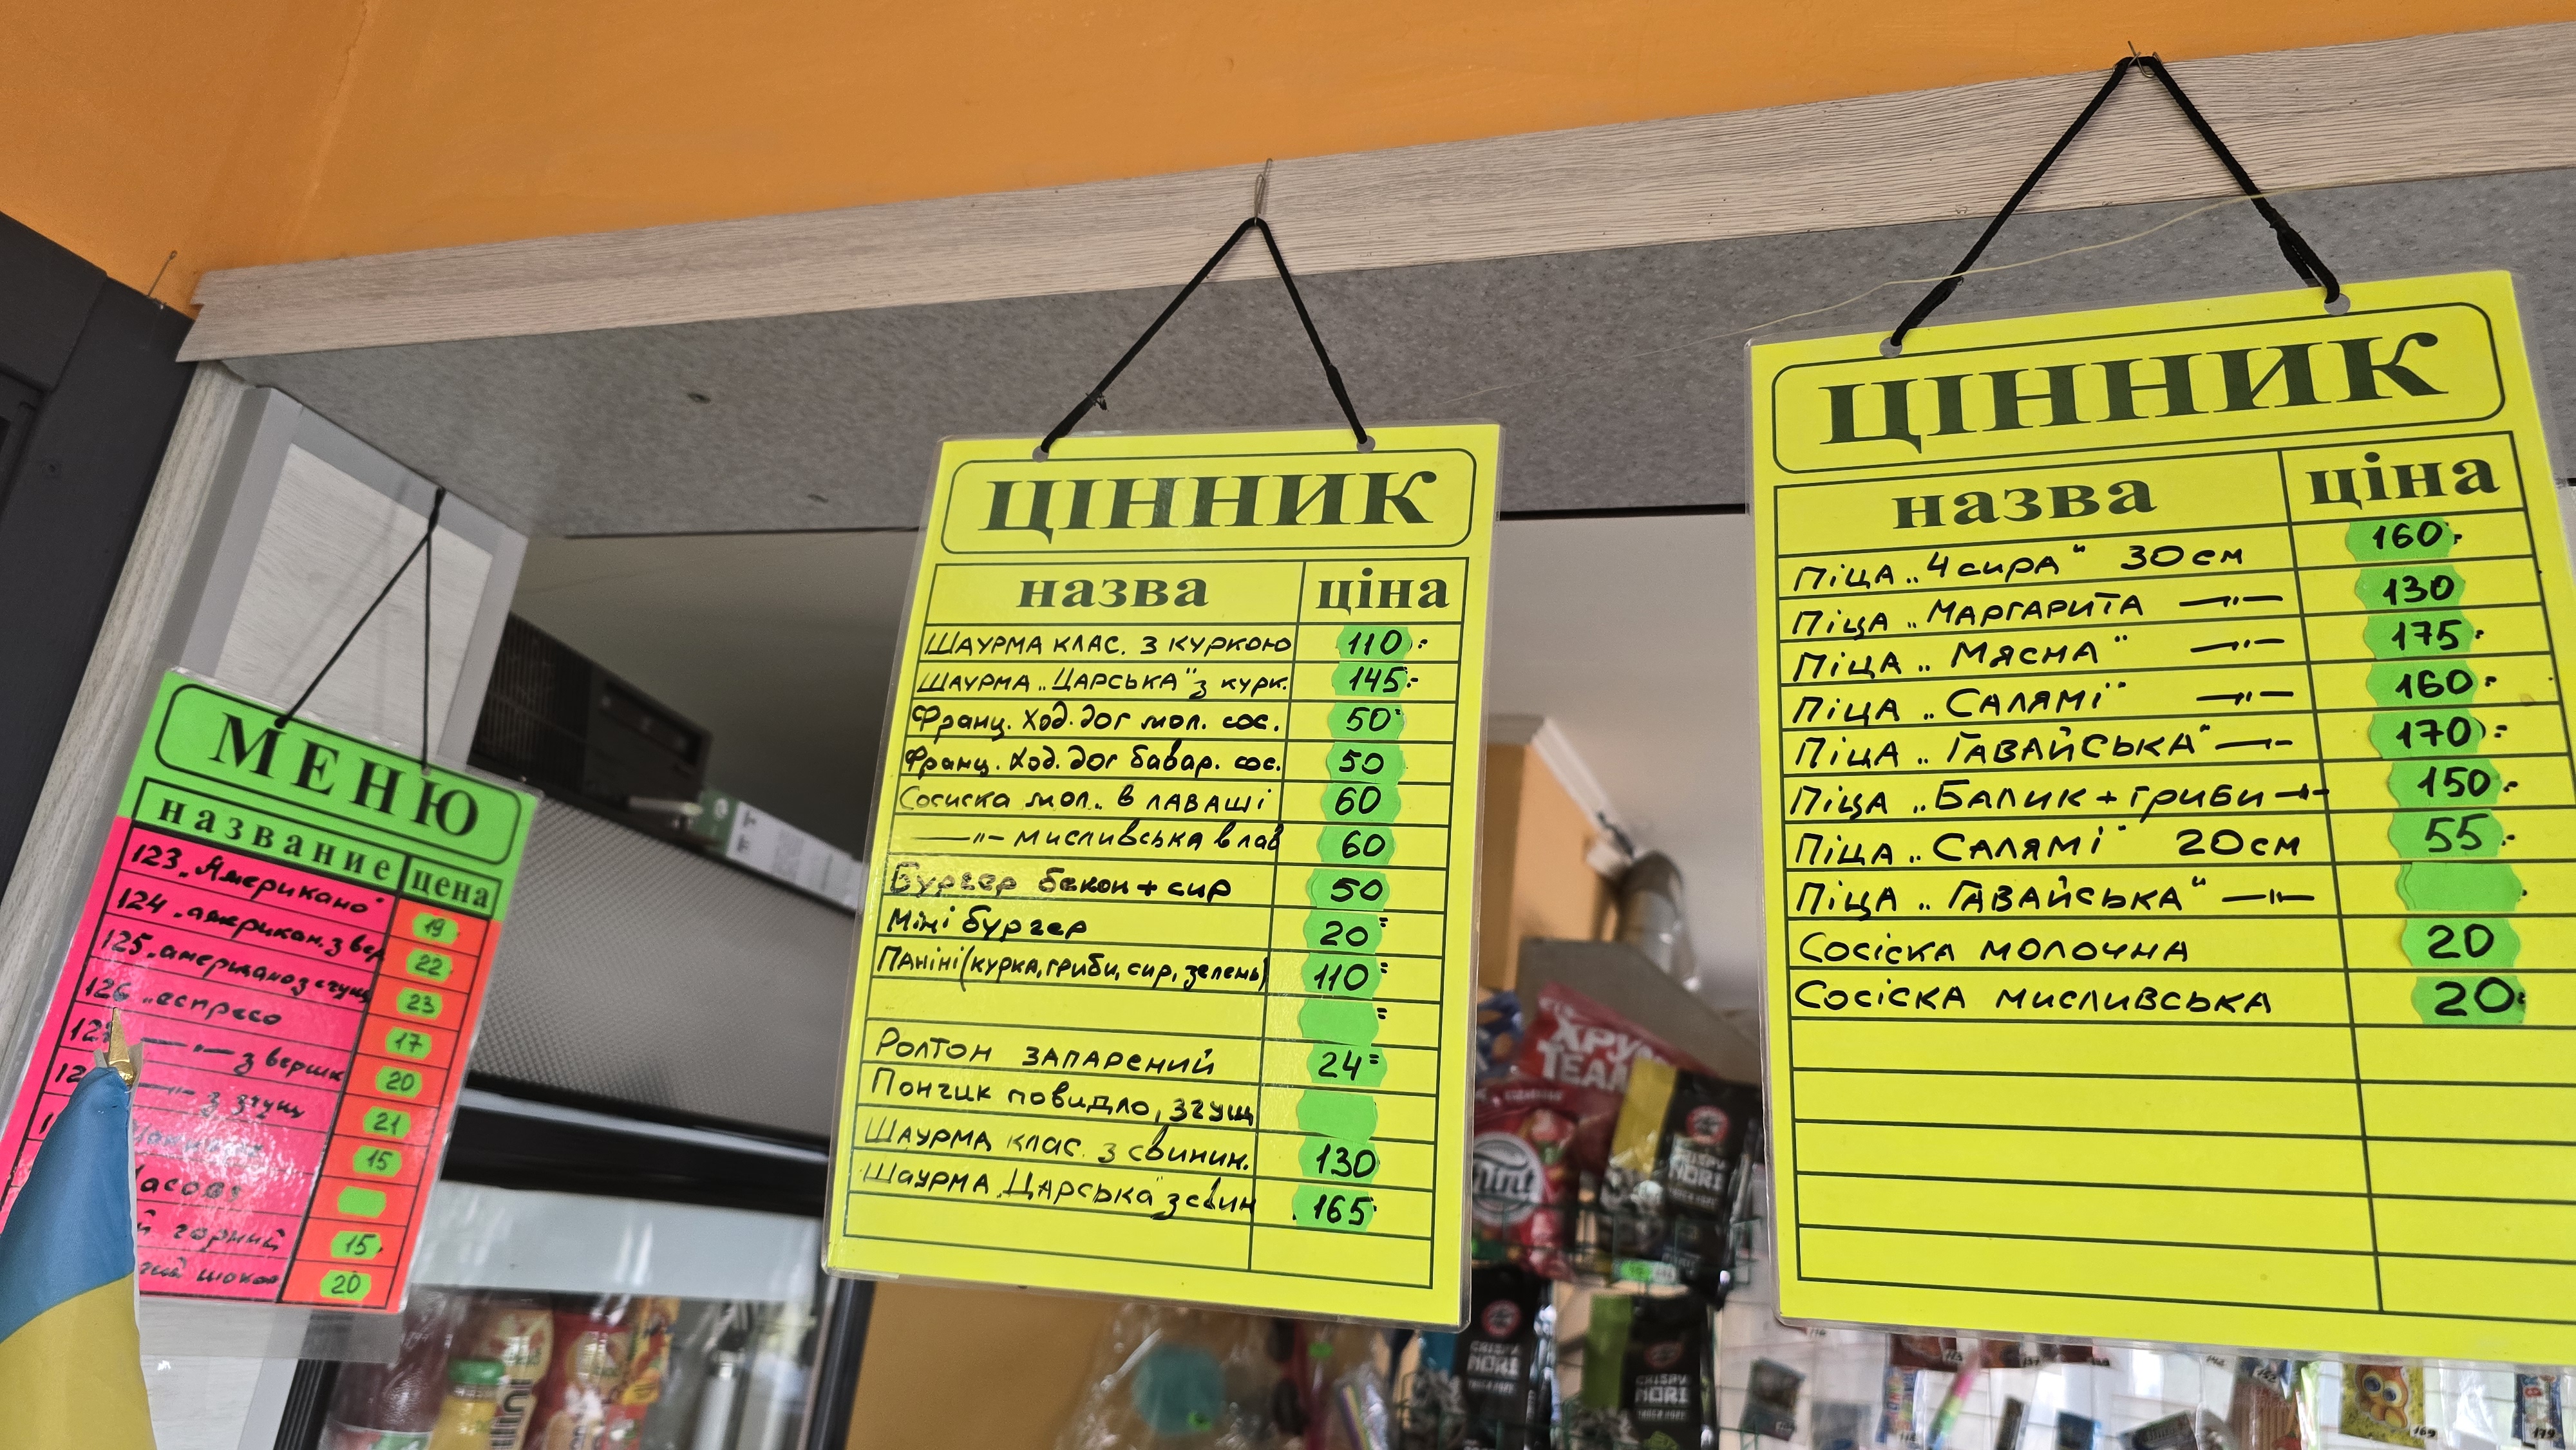 МЕНЮ
название цена
123 „Американо" 19
124 „американ. з вер 22
125 „американо з згущ 23
126 „еспресо 17
—"— з вершк 20
—"— з згущ 21
15
15
горний
20
ЦІННИК
назва ціна
Шаурма клас. з куркою 110=
Шаурма „Царська" з курк. 145=
Франц. Ход. дог мол. сос. 50
Франц. Ход. дог бавар. сос. 50
Сосиска мол. в лаваші 60
—"— мисливська в лав 60
Бургер бекон + сир 50
Міні бургер 20=
Паніні (курка, гриби, сир, зелень) 110=
Ролтон запарений 24=
Пончик повидло, згущ
Шаурма клас. з свинин. 130
Шаурма „Царська" з свин 165
ЦІННИК
назва ціна
Піца „4 сира" 30 см 160
Піца „Маргарита —"— 130
Піца „Мясна" —"— 175
Піца „Салямі" —"— 160
Піца „Гавайська" —"— 170=
Піца „Балик + гриби —"— 150
Піца „Салямі" 20 см 55
Піца „Гавайська" —"—
Сосіска молочна 20
Сосіска мисливська 20
ХРУМ
TEAM
mint
CRISPY
NORI
CRISPY
NORI
CRISPY
NORI